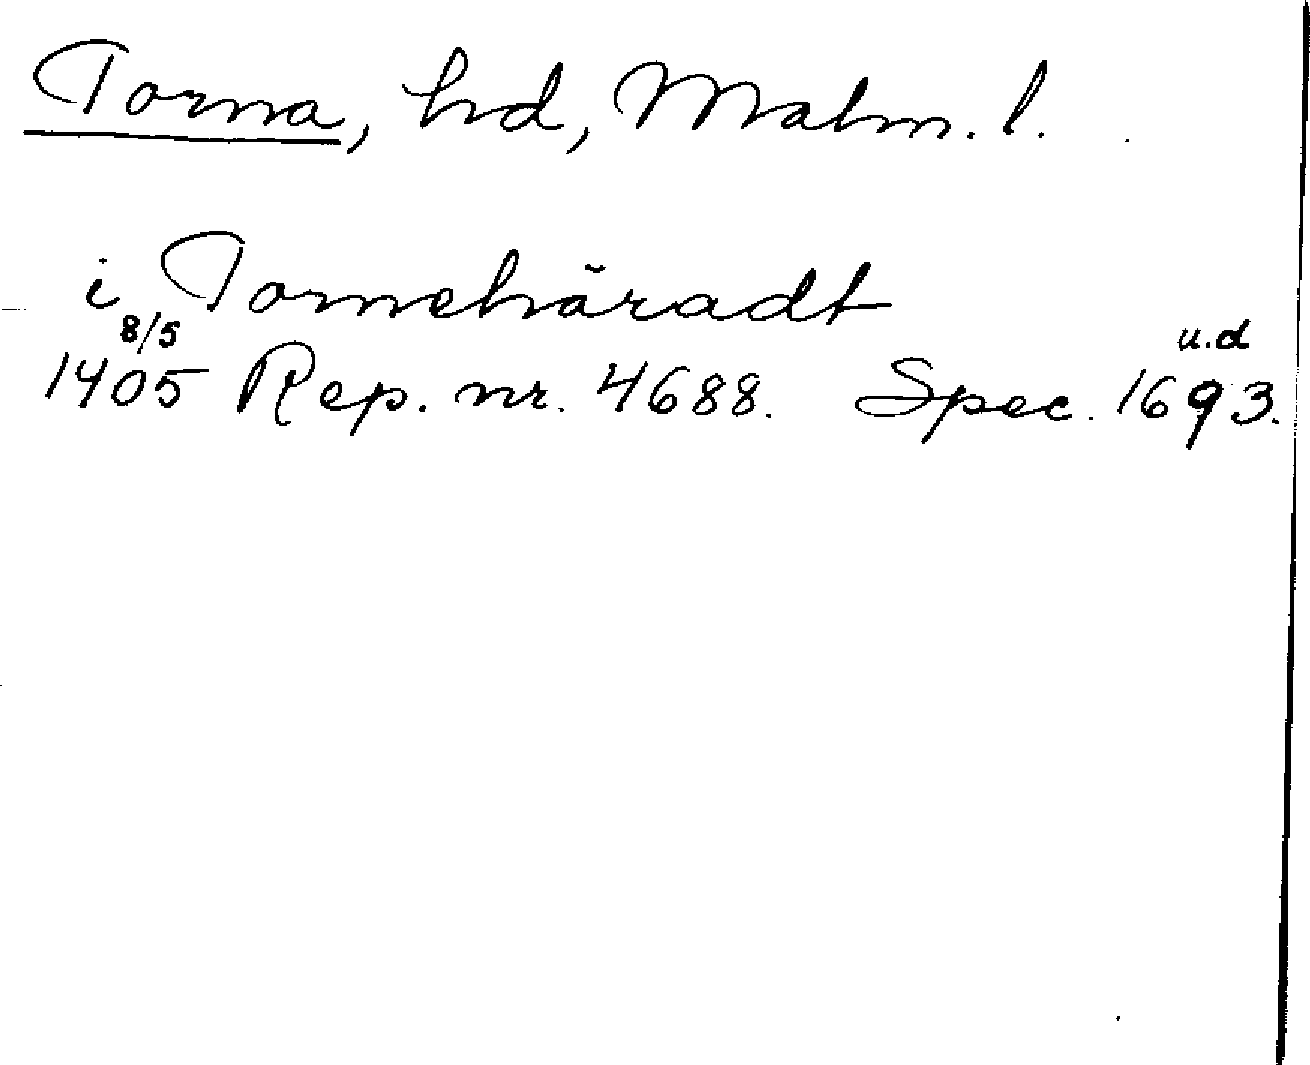 Torna, hd, Malm. l.
i Tornehäradt
8/5 u.d
1405 Rep. nr. 4688. Spec. 1693.